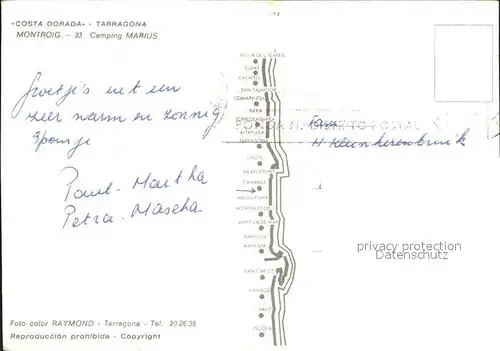 «COSTA DORADA» - TARRAGONA
MONTROIG. - 33. Camping MARIUS
Groetjes uit een
zeer warm en zonnig
Spanje
Paul - Martha
Petra - Mascha
Fam.
H. Kleinherenbrink
CUNIT
CALAFELL
SAN SALVADOR
COMARRUGA
TORREDEMBARRA
ALTAFULLA
TARRAGONA
SALOU
CAMBRILS
MIAMI PLAYA
HOSPITALET
AMETLLA DE MAR
AMPOLLA
AMPOSTA
SAN CARLOS
VINAROZ
privacy protection
Datenschutz
Foto color RAYMOND - Tarragona - Tel. 20 26 35
Reproducción prohibida - Copyright